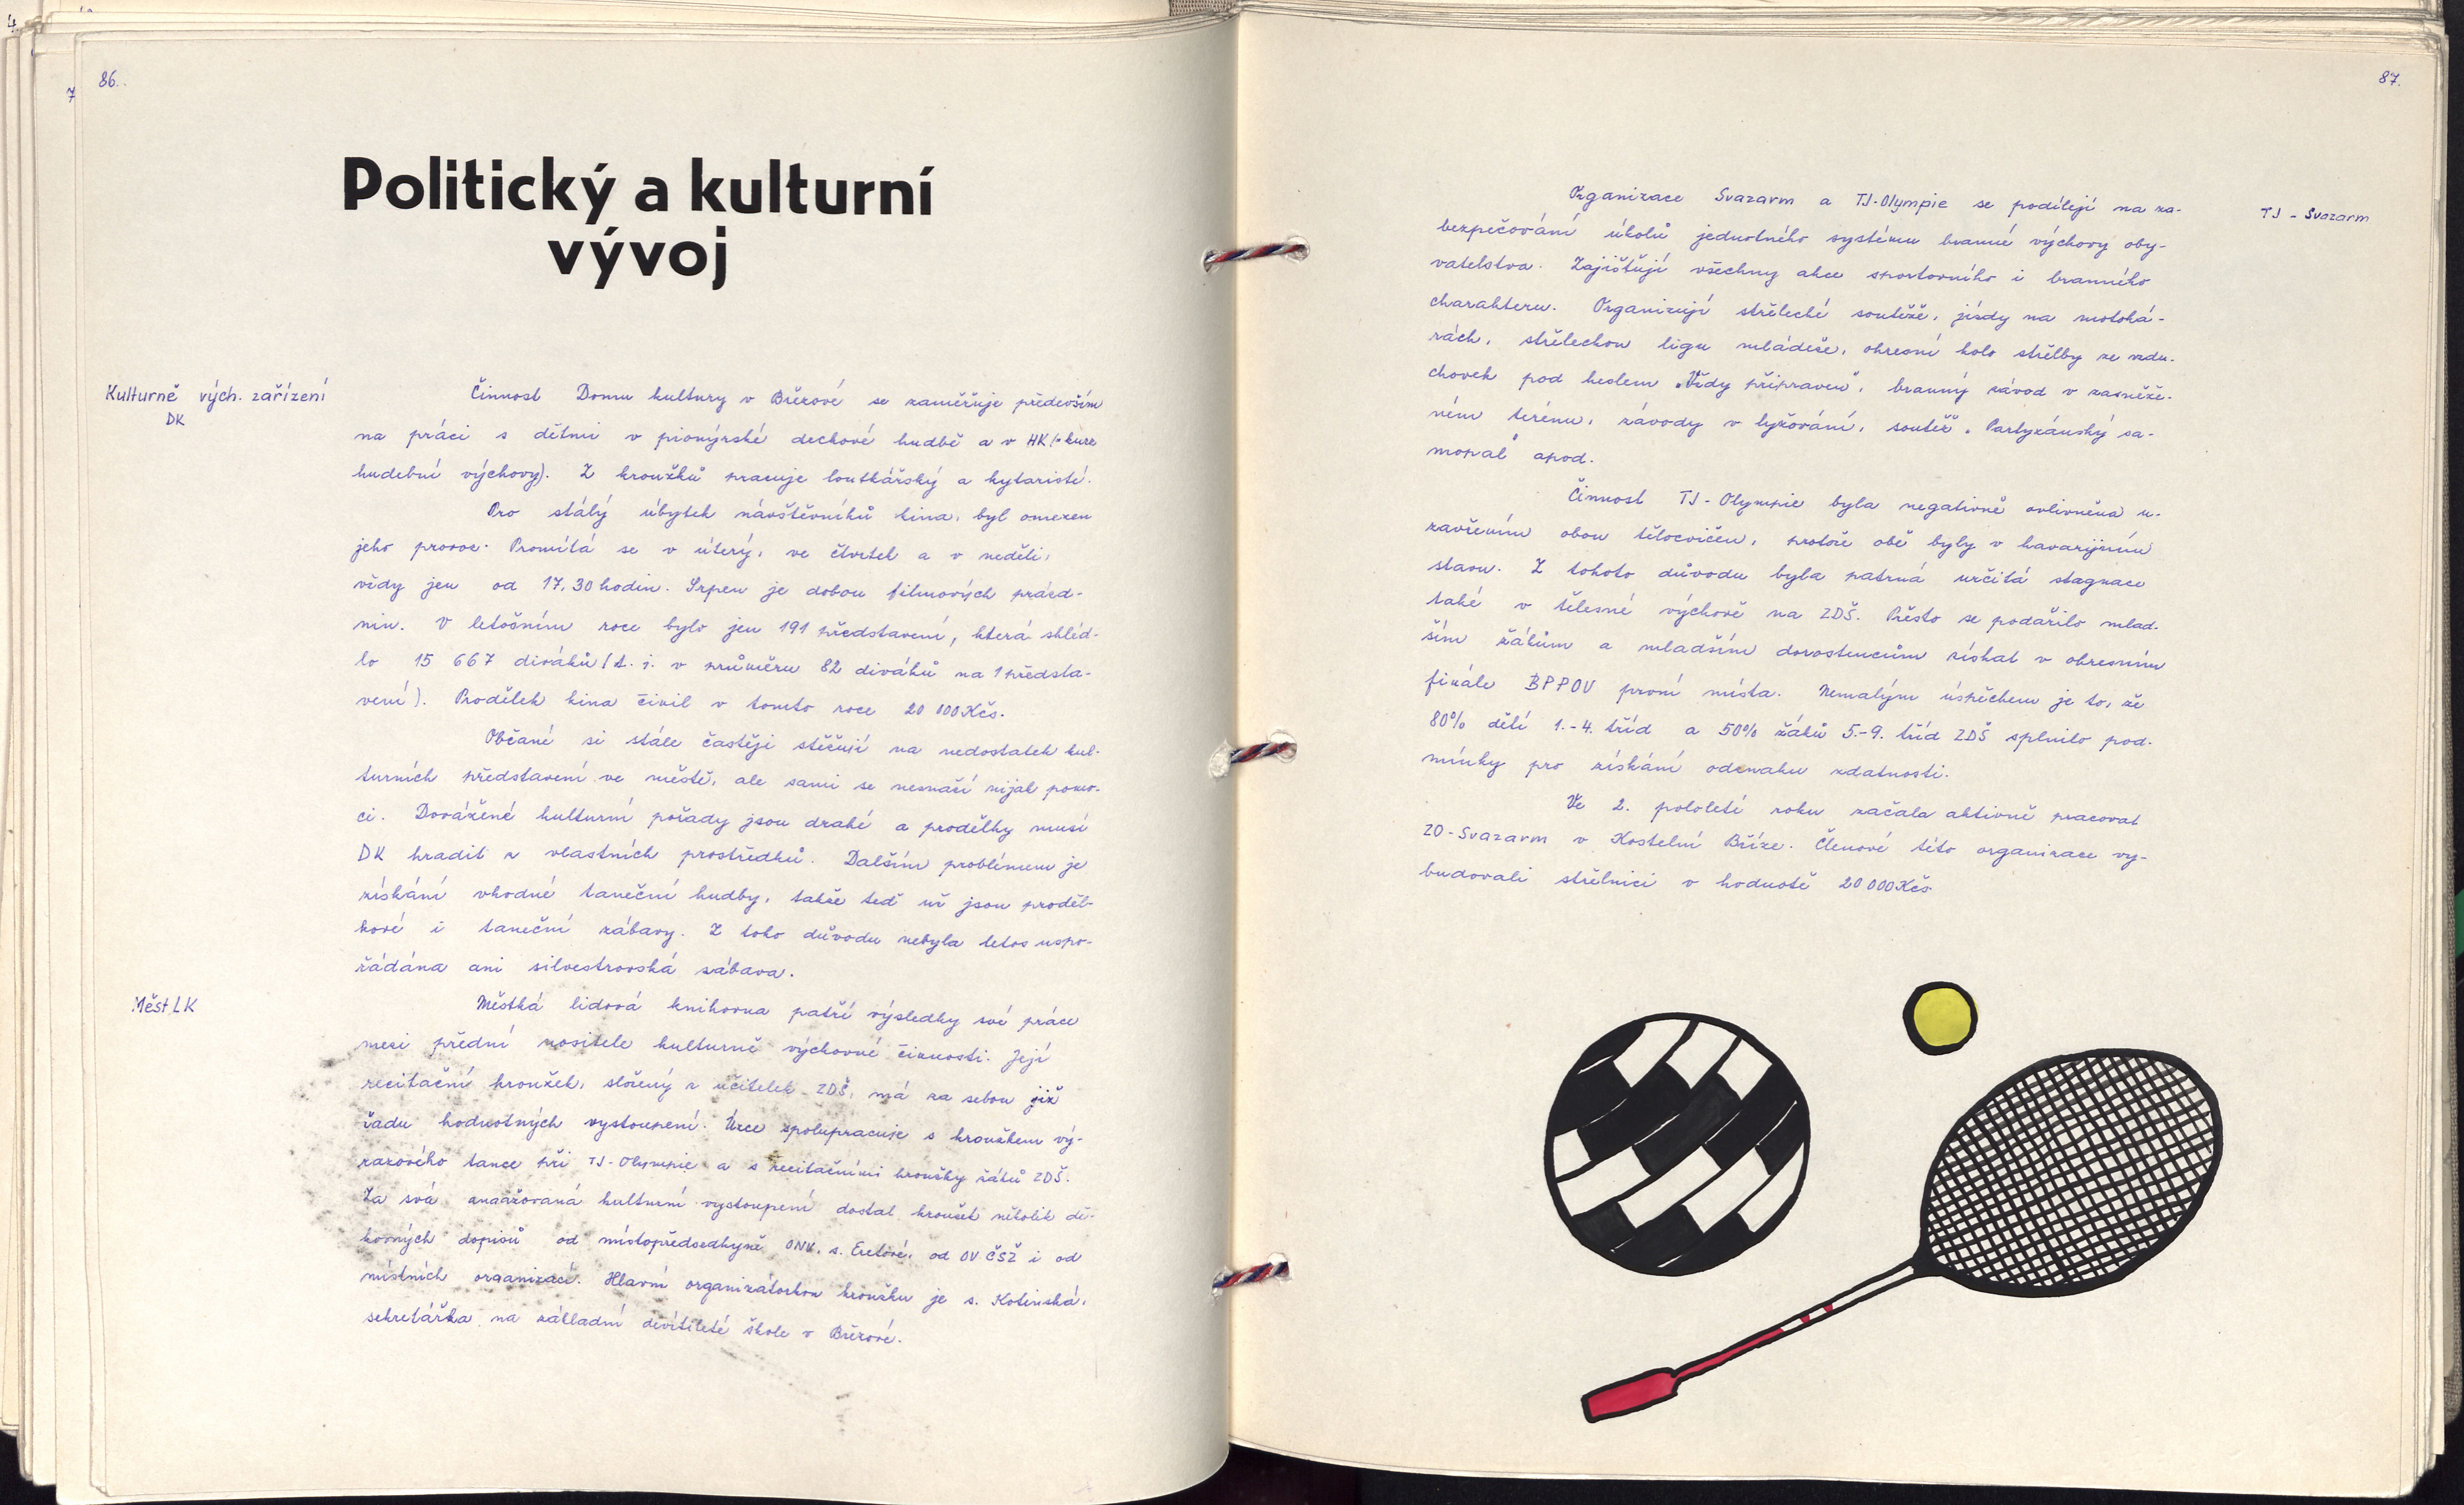 86.
Politický a kulturní
vývoj
Kulturně vých. zařízení
DK
Činnost Domu kultury v Březové se zaměřuje především
na práci s dětmi v pionýrské dechové hudbě a v HK
hudební výchovy). Z kroužků pracuje loutkářský a kytaristé.
Pro stálý úbytek návštěvníků kina, byl omezen
jeho provoz. Promítá se v úterý, ve čtvrtek a v neděli,
vždy jen od 17,30 hodin. Srpen je dobou filmových prázd-
nin. V letošním roce bylo jen 191 představení, která shléd-
lo 15 667 diváků (t. j. v průměru 82 diváků na 1 předsta-
vení). Prodělek kina činil v tomto roce 20 000 Kčs.
Občané si stále častěji stěžují na nedostatek kul-
turních představení ve městě, ale sami se nesnaží nijak pomo-
ci. Dovážené kulturní pořady jsou drahé a prodělky musí
DK hradit z vlastních prostředků. Dalším problémem je
získání vhodné taneční hudby, takže teď už jsou proděl-
kové i taneční zábavy. Z toho důvodu nebyla letos uspo-
řádána ani silvestrovská zábava.
Měst LK
Městká lidová knihovna patří výsledky své práce
mezi přední nositele kulturně výchovné činnosti. Její
recitační kroužek, složený z učitelek ZDŠ, má za sebou již
řadu hodnotných vystoupení. Úzce spolupracuje s kroužkem vý-
razového tance při TJ-Olympie a s recitačními kroužky žáků ZDŠ.
Za svá angažovaná kulturní vystoupení dostal kroužek několik dě-
kovných dopisů od místopředsedkyně ONV, s. od OV ČSŽ i od
místních organizací. Hlavní organizátorkou kroužku je s. Kotinská,
sekretářka na základní devítileté škole v Březové.
87.
TJ - Svazarm
Organizace Svazarm a TJ-Olympie se podílejí na za-
bezpečování úkolů jednotného systému branné výchovy oby-
vatelstva. Zajišťují všechny akce sportovního i branného
charakteru. Organizují střelecké soutěže, jízdy na motoká-
rách, střeleckou ligu mládeže, okresní kolo střelby ze vzdu-
chovek pod heslem „Vždy připraven", branný závod v zasněže-
ném terénu, závody v lyžování, soutěž „Partyzánský sa-
mopal" apod.
Činnost TJ-Olympie byla negativně ovlivněna u-
zavřením obou tělocvičen, protože obě byly v havarijním
stavu. Z tohoto důvodu byla patrná určitá stagnace
také v tělesné výchově na ZDŠ. Přesto se podařilo mlad-
ším žákům a mladším dorostencům získat v okresním
finále BPPOV první místa. Nemalým úspěchem je to, že
80% dětí 1.-4. tříd a 50% žáků 5.-9. tříd ZDŠ splnilo pod-
mínky pro získání odznaku zdatnosti.
Ve 2. pololetí roku začala aktivně pracovat
ZO-Svazarm v Kostelní Bříze. Členové této organizace vy-
budovali střelnici v hodnotě 20 000 Kčs